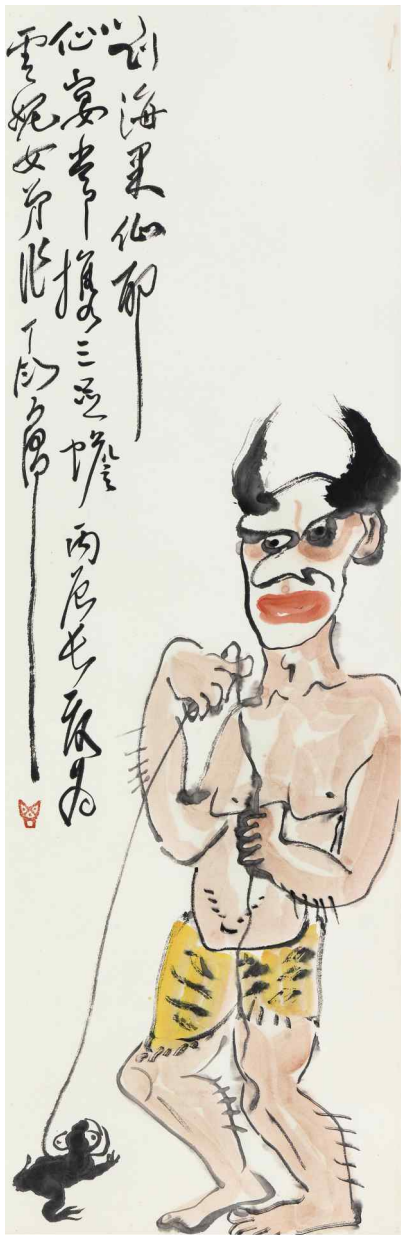 劉海果仙耶
仙宴常攜三足蟾 丙辰長夜為
雲妮女弟作 丁衍庸